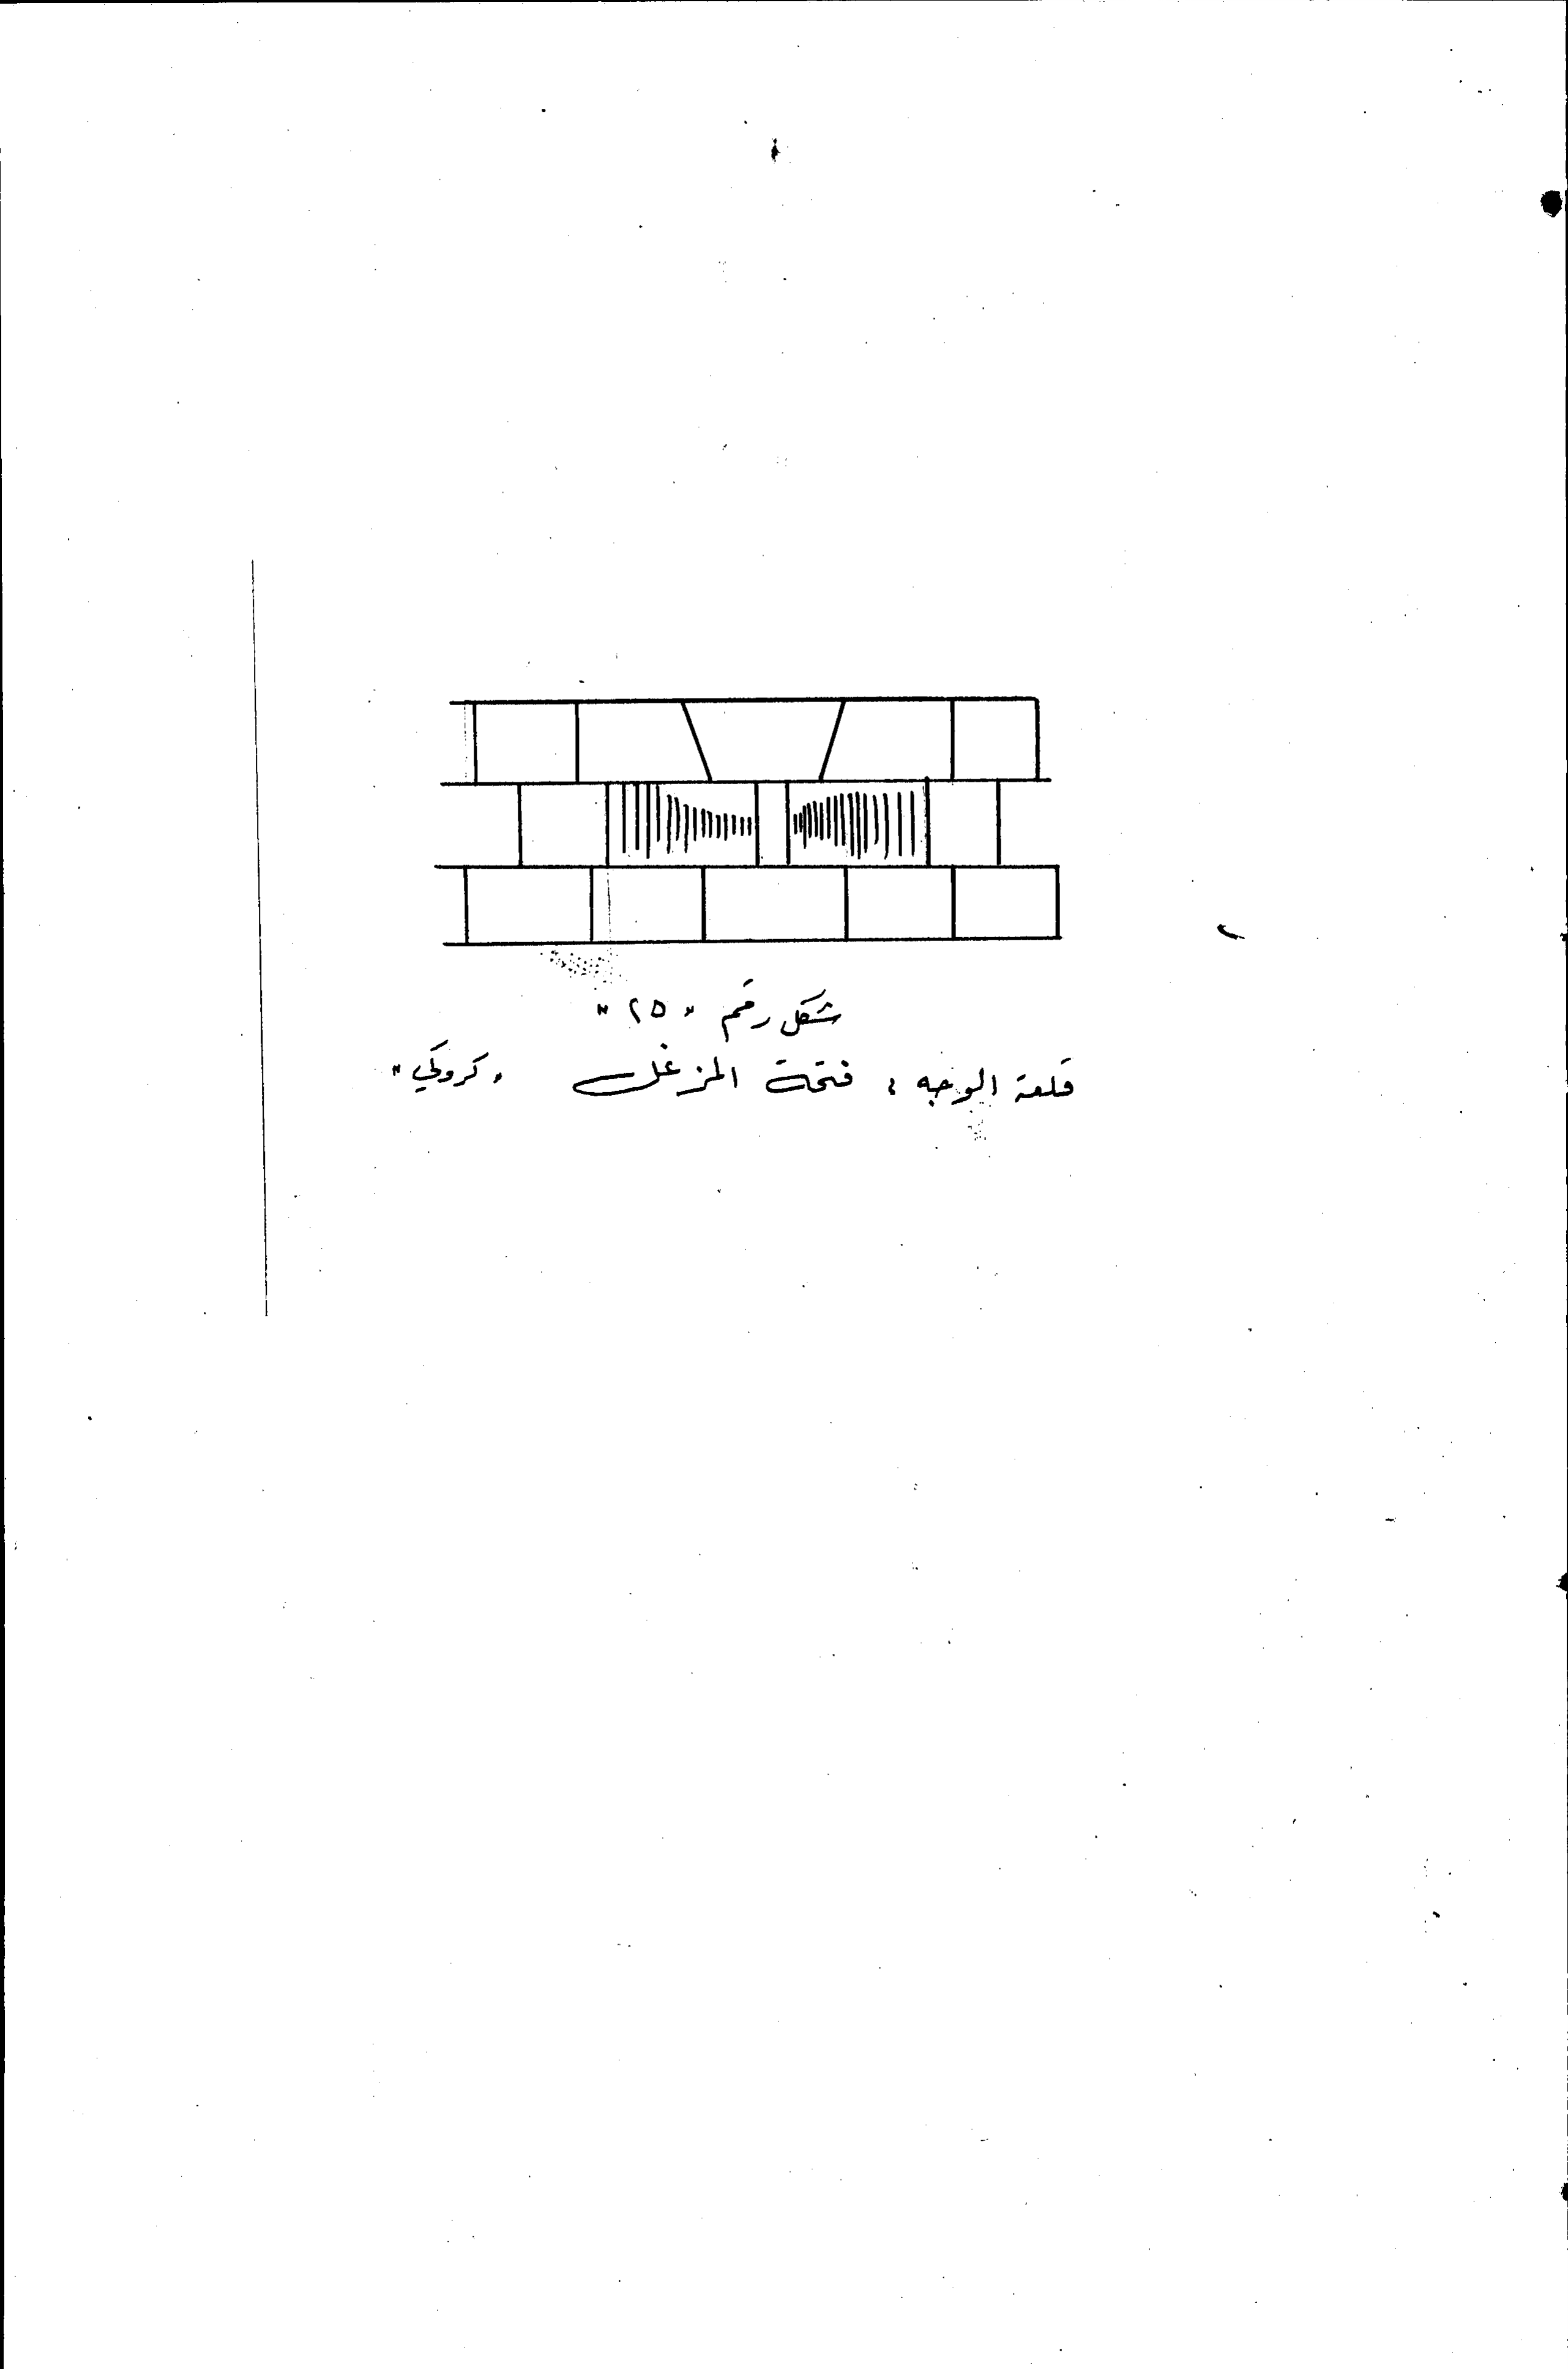 شكل رقم "٢٥"
قلعة الوجه ، فتحة المزغل "كروكي"